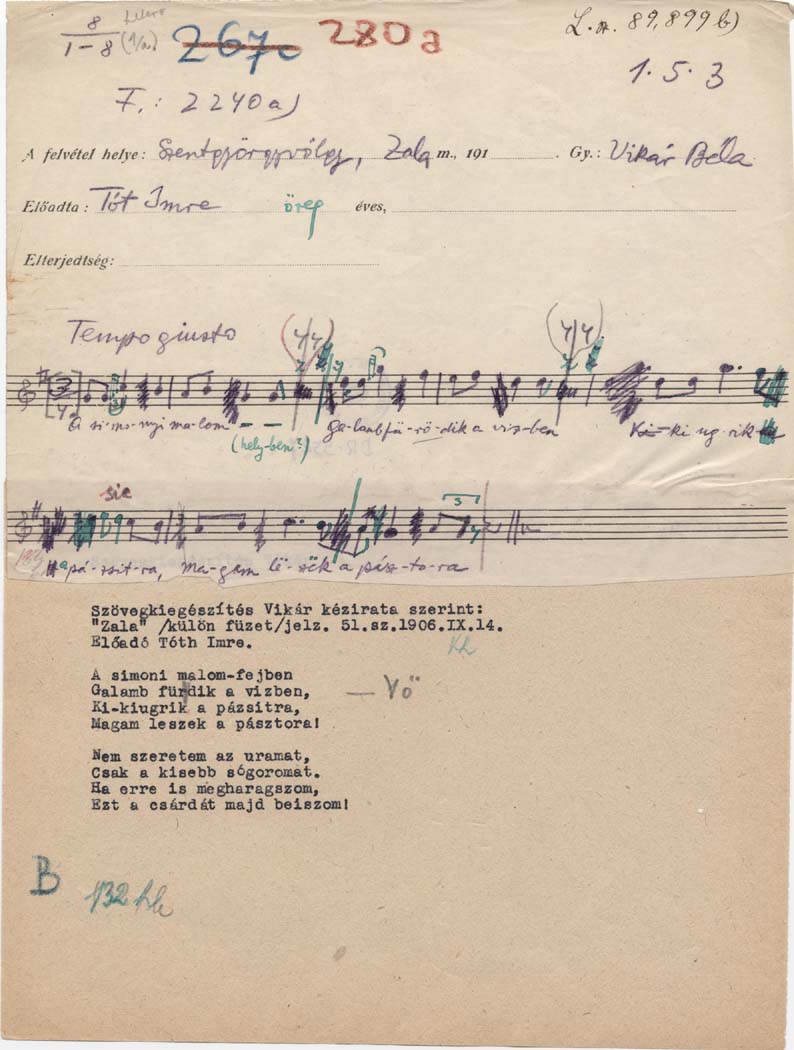 8
1-8 (1/a)
267c 280a
L.sz. 89,899 b)
1.5.3
F.: 2240a)
A felvétel helye: Szentgyörgyvölgy, Zala m., 191 Gy.: Vikár Béla
Előadta: Tót Imre öreg éves,
Elterjedtség:
Tempo giusto
A si-mo-nyi ma-lom - - Ga-lamb fü-rö-dik a viz-ben Ki-ki ug-rik
(hely-ben?)
sic
3
a pá-zsit-ra, ma-gam lë-szëk a pász-to-ra
Szövegkiegészítés Vikár kézirata szerint:
"Zala" /külön füzet/jelz. 51.sz.1906.IX.14.
Előadó Tóth Imre.
A simoni malom-fejben
Galamb fürdik a vizben, — Vö
Ki-kiugrik a pázsitra,
Magam leszek a pásztora!
Nem szeretem az uramat,
Csak a kisebb sógoromat.
Ha erre is megharagszom,
Ezt a csárdát majd beiszom!
B
132